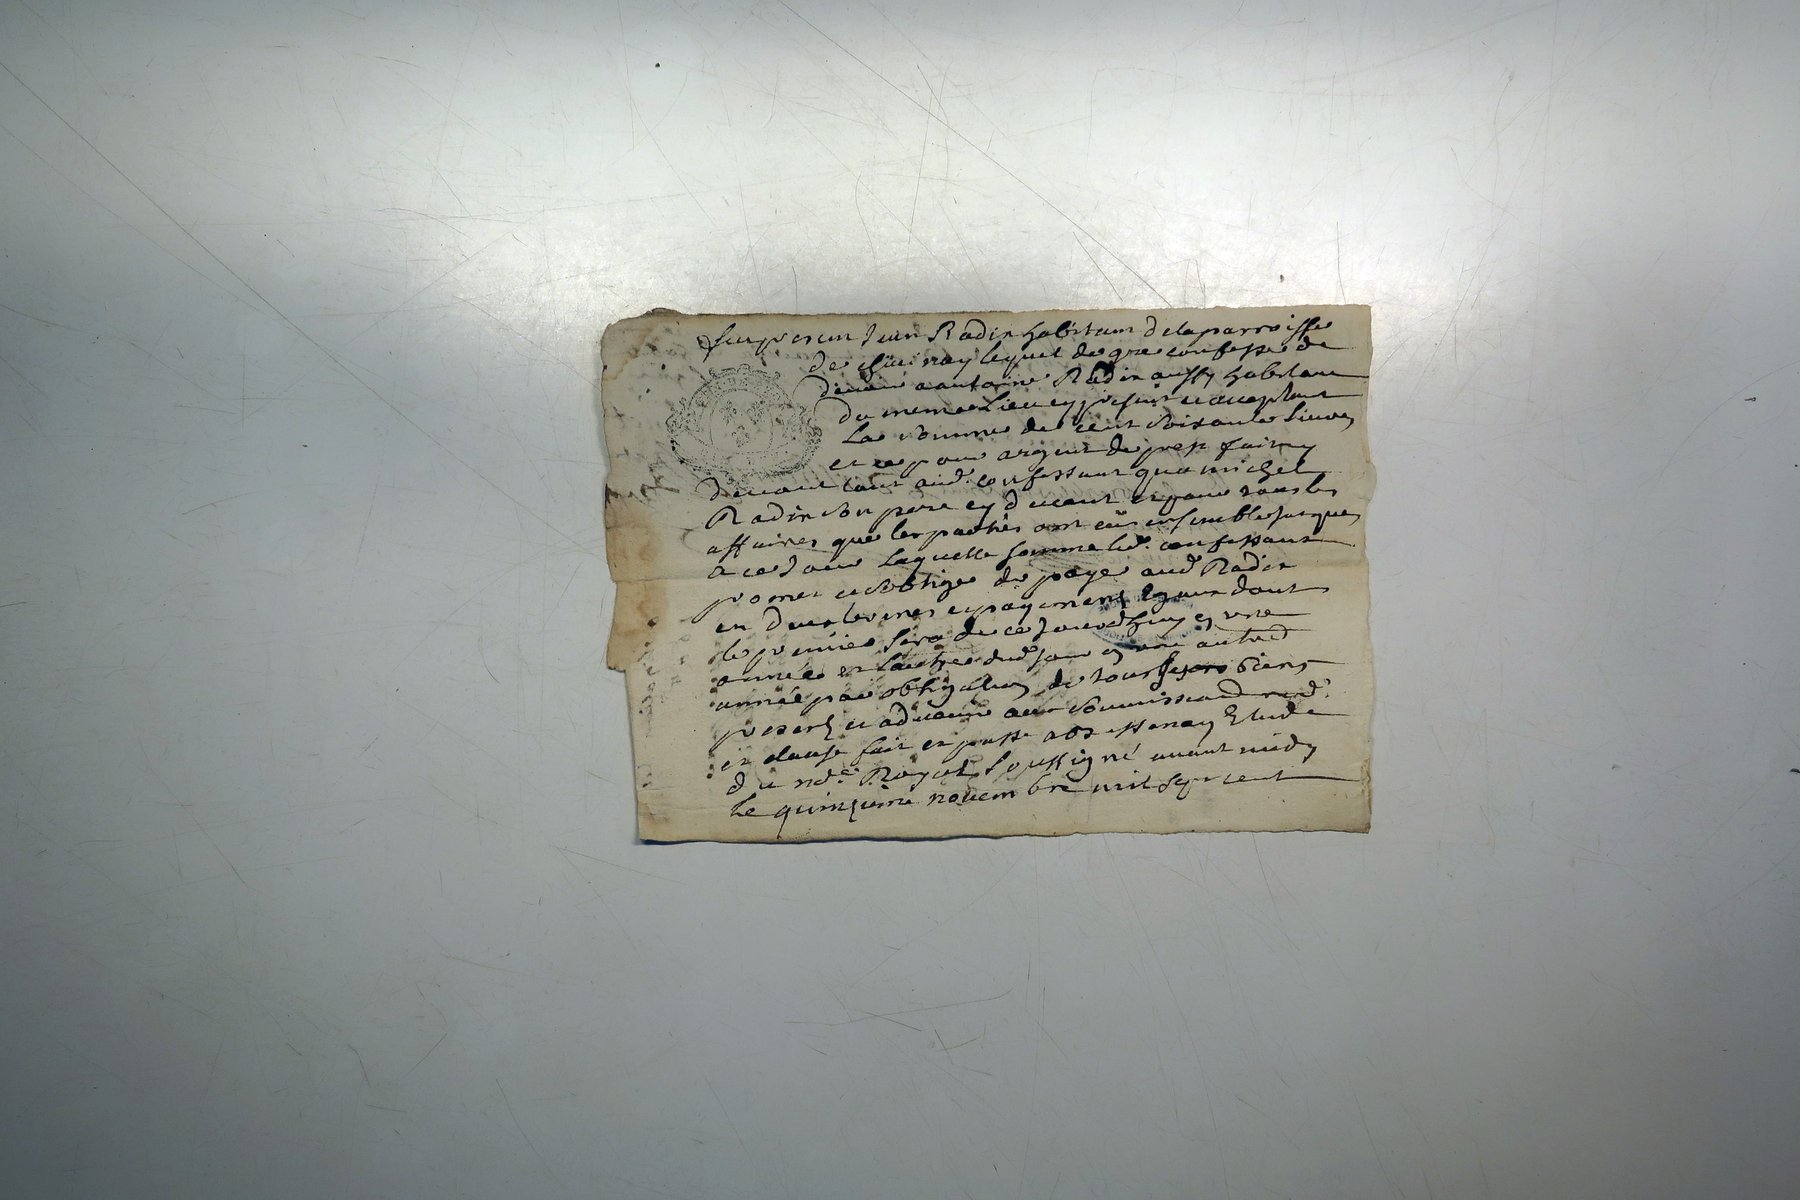 fut present Jean Radix habitant de la parroisse
de lequel de gre confesse de
devoir a antoine Radix aussy habitant
du mesme lieu cy present et acceptant
la somme de cent soixante livres
et ce pour argent de prest fait cy
devant tant aud. confessant qua michel
Radix son pere cy devant et pour tous les
affaires que les parties ont eus ensemble jusques
a ce jour laquelle somme led. confessant
promet et soblige de payer aud Radix
en deux termes et payements egaux dont
le premier sera de ce jourdhuy en une
année et lautre dud jour en une autre
année par obligation de tous biens
presents et advenir aux soumissions
et clause fait et passé a Etude
du no.re Royal soussigné avant midy
le quinzieme novembre mil sept cent